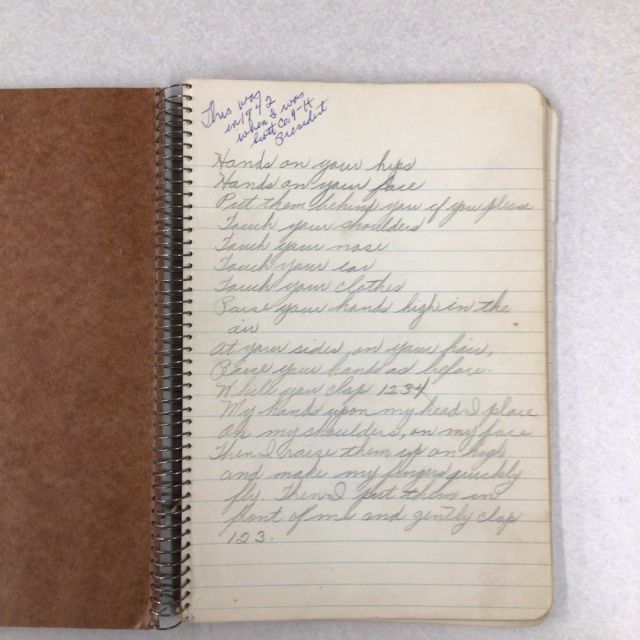 This was
in 1972
when I was
Scott Co 4-H
President
Hands on your hips
Hands on your face
Put them behind you if you please
Touch your shoulders
Touch your nose
Touch your ear
Touch your clothes
Raise your hands high in the
air
At your sides, on your hair,
Raise your hands as before.
While you clap 1234
My hands upon my head I place
On my shoulders, on my face
Then I raise them up on high
and make my fingers quickly
fly. Then I put them in
front of me and gently clap
123.